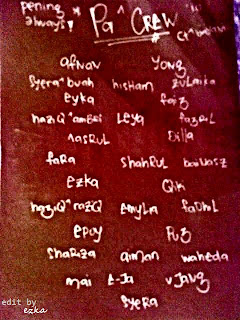 pening always!
Pa^ CREW
afnan yong
syera^buah hisham zulaika
eyka faiz
haziq^amberi Leya fazrul
nasrul Ezlla
fara shahrul
ezka Qiki
haziq^raziq emylia fadhil
epoy Puz
shariza aiman waheda
mai E-Ja vjang
syera
edit by ezka